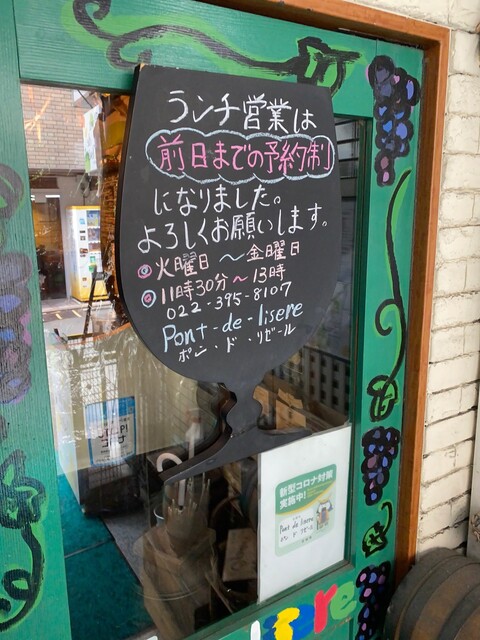 ランチ営業は
前日までの予約制
になりました。
よろしくお願いします。
火曜日〜金曜日
11時30分〜13時
022-395-8107
Pont-de-lisere
ポン・ド・リゼール
新型コロナ対策
実施中!
Pont de lisere
ポン ド リゼール